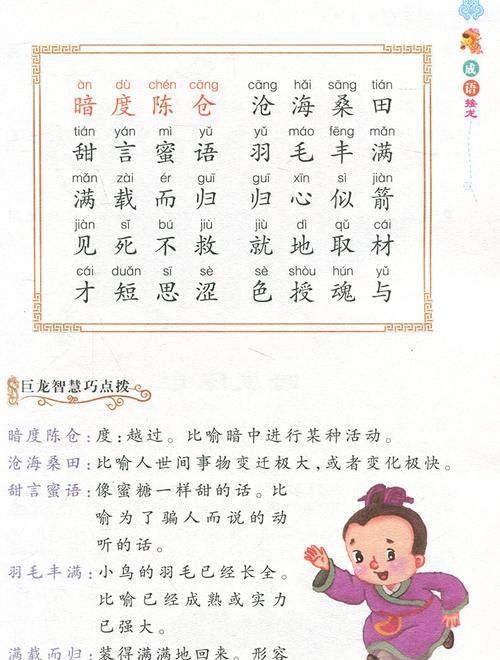 成语接龙
àn dù chén cāng cāng hǎi sāng tián
暗度陈仓 沧海桑田
tián yán mì yǔ yǔ máo fēng mǎn
甜言蜜语 羽毛丰满
mǎn zài ér guī guī xīn sì jiàn
满载而归 归心似箭
jiàn sǐ bú jiù jiù dì qǔ cái
见死不救 就地取材
cái duǎn sī sè sè shòu hún yǔ
才短思涩 色授魂与
巨龙智慧巧点拨
暗度陈仓:度:越过。比喻暗中进行某种活动。
沧海桑田:比喻人世间事物变迁极大,或者变化极快。
甜言蜜语:像蜜糖一样甜的话。比
喻为了骗人而说的动
听的话。
羽毛丰满:小鸟的羽毛已经长全。
比喻已经成熟或实力
已强大。
满载而归:装得满满地回来。形容